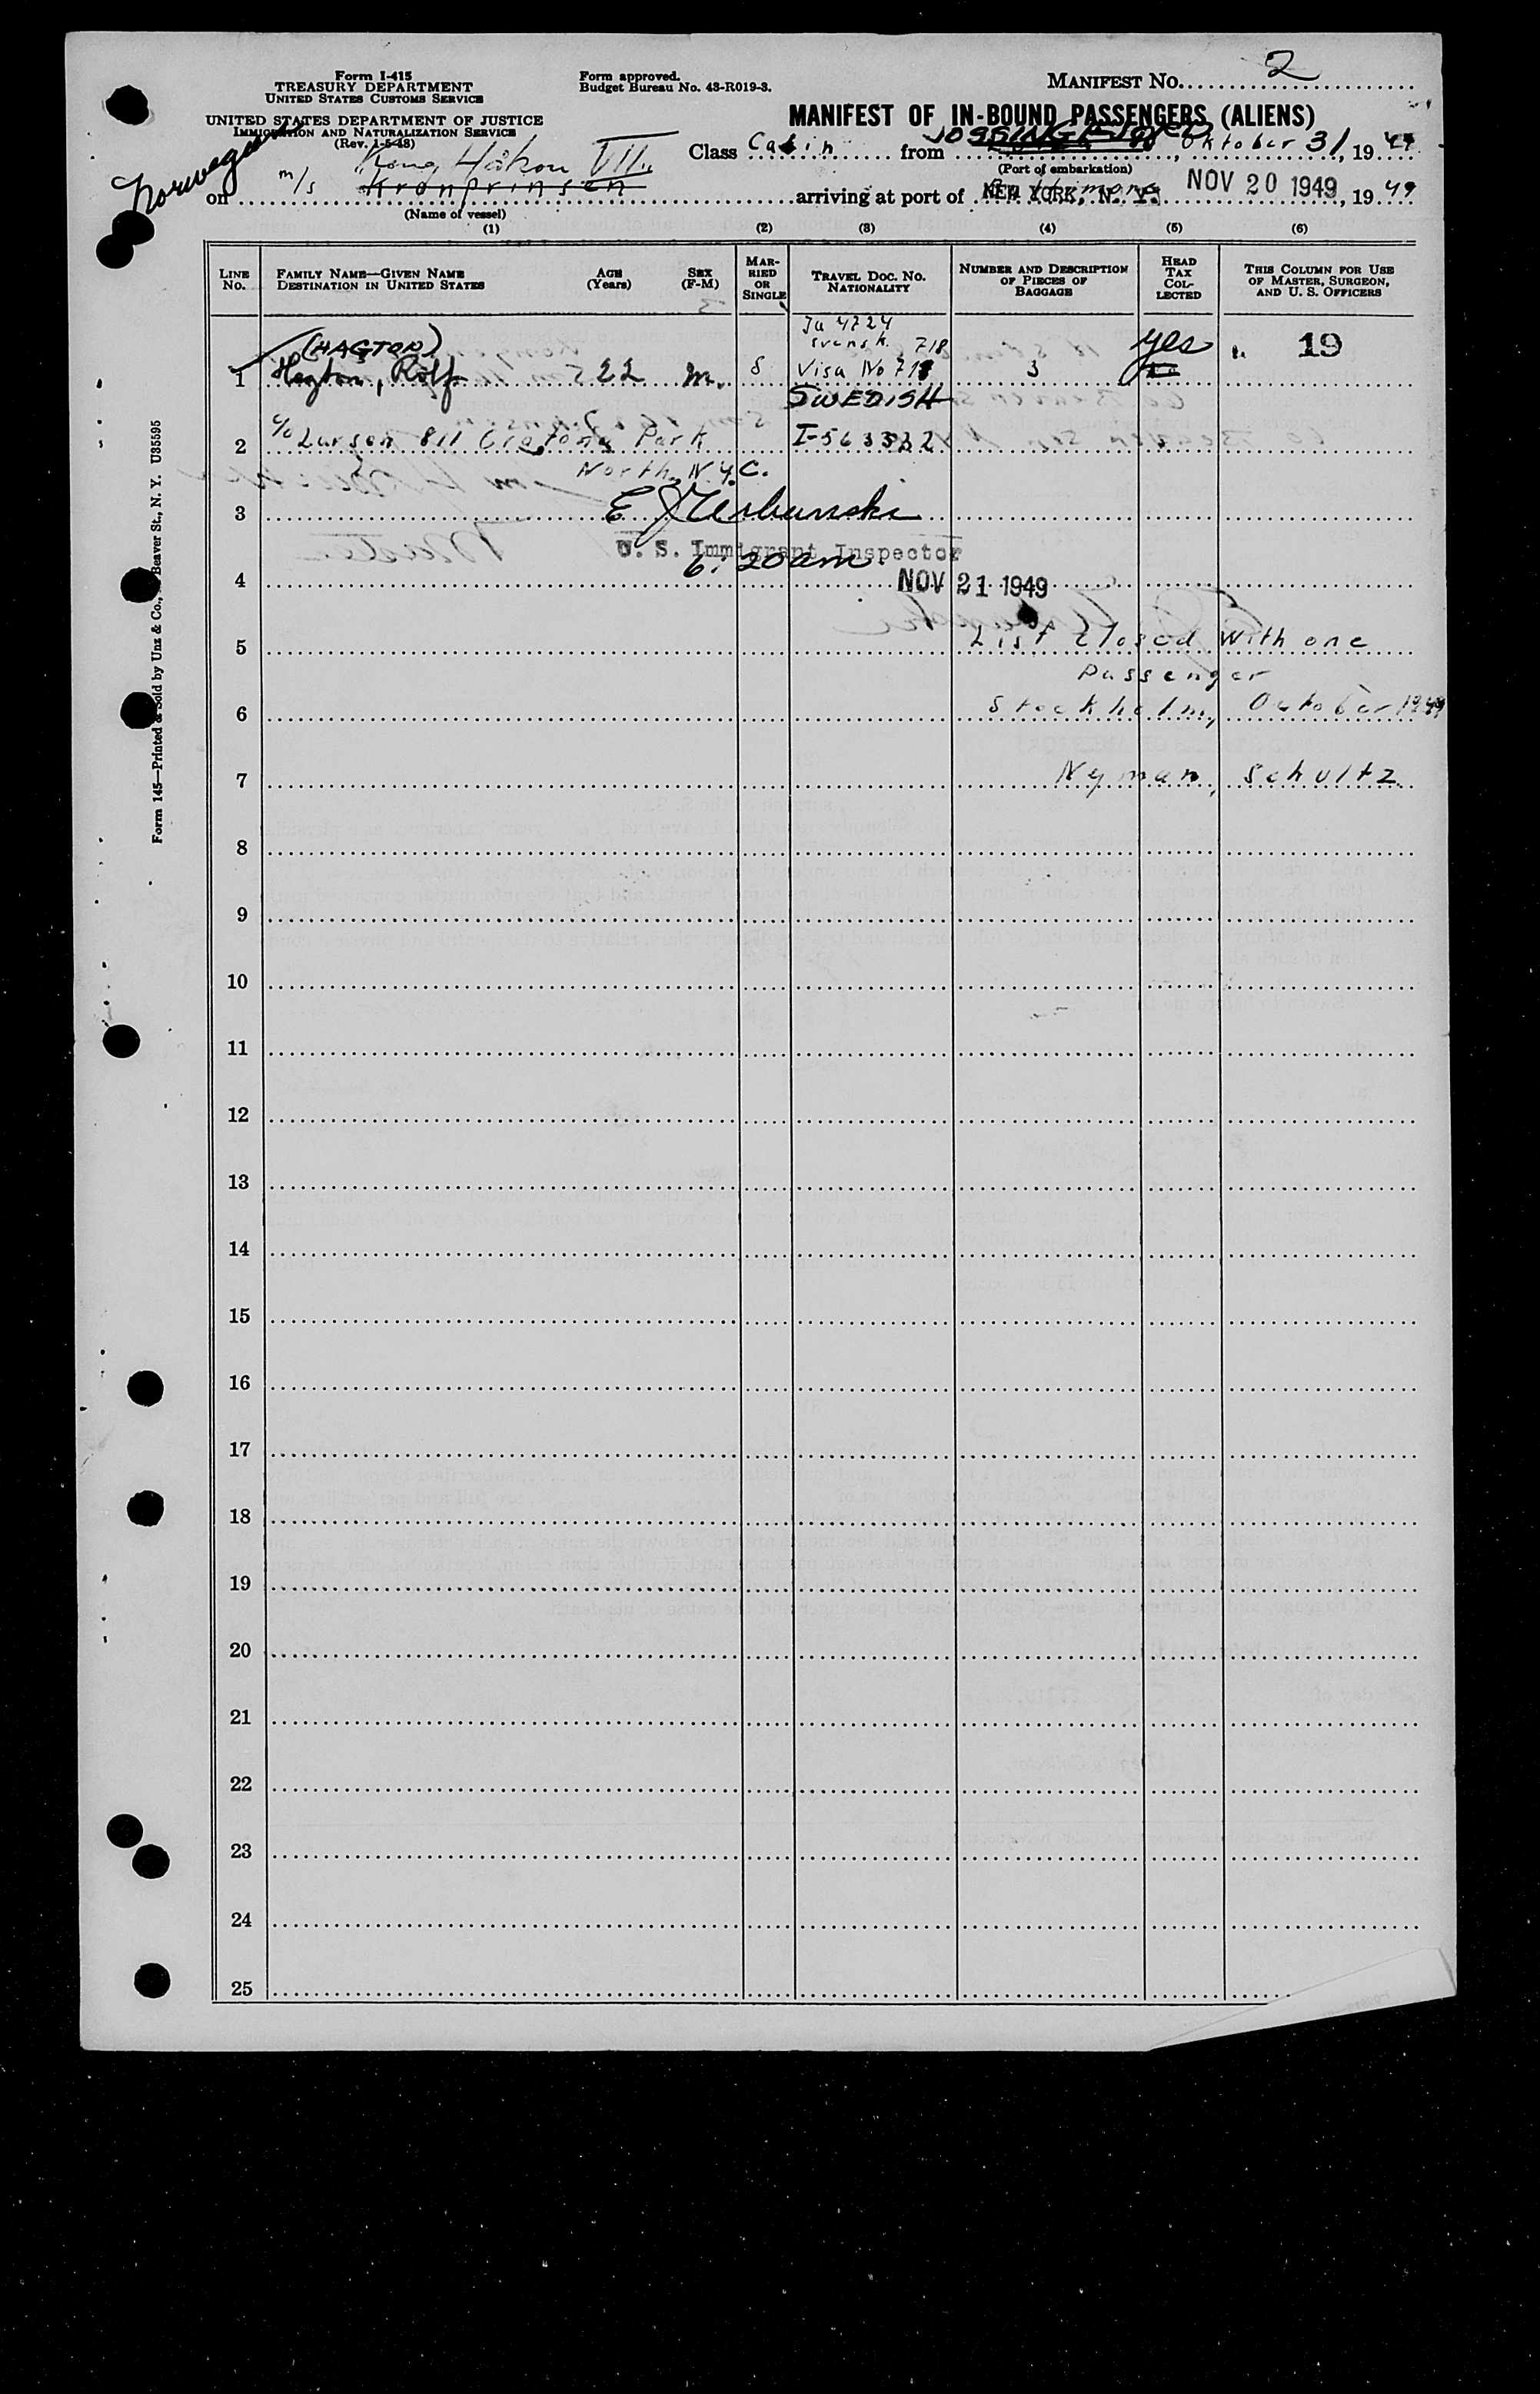 Form I-415
TREASURY DEPARTMENT
UNITED STATES CUSTOMS SERVICE
UNITED STATES DEPARTMENT OF JUSTICE
IMMIGRATION AND NATURALIZATION SERVICE
(Rev. 1-5-48)
Form approved.
Budget Bureau No. 43-R019-3.
MANIFEST NO. 2
MANIFEST OF IN-BOUND PASSENGERS (ALIENS)
Norwegian
Class Cabin from JOSSINGFJORD, Oktober 31, 19 49
(Port of embarkation)
Kong Håkon VII
on m/s Kronprinsen arriving at port of NEW YORK, N. Y. NOV 20 1949, 19 49
(Name of vessel)
(1) (2) (3) (4) (5) (6)
LINE NO.
FAMILY NAME—GIVEN NAME
DESTINATION IN UNITED STATES
AGE (Years)
SEX (F-M)
MARRIED OR SINGLE
TRAVEL DOC. NO.
NATIONALITY
NUMBER AND DESCRIPTION OF PIECES OF BAGGAGE
HEAD TAX COLLECTED
THIS COLUMN FOR USE OF MASTER, SURGEON, AND U. S. OFFICERS
4724
svensk 718
(HAGTON) yes 19
1 Hagton, Rolf 22 m. S Visa No 718 3
SWEDISH
2 c/o Larson 811 Crotona Park I-563332
North, N.Y.C.
3
U. S. Immigrant Inspector
6:20 am
4 NOV 21 1949
5 List closed with one
passenger
6 Stockholm, October 1949
7 Nyman, Schultz
8
9
10
11
12
13
14
15
16
17
18
19
20
21
22
23
24
25
Form 145—Printed & Sold by Unz & Co., Beaver St., N. Y. U35595